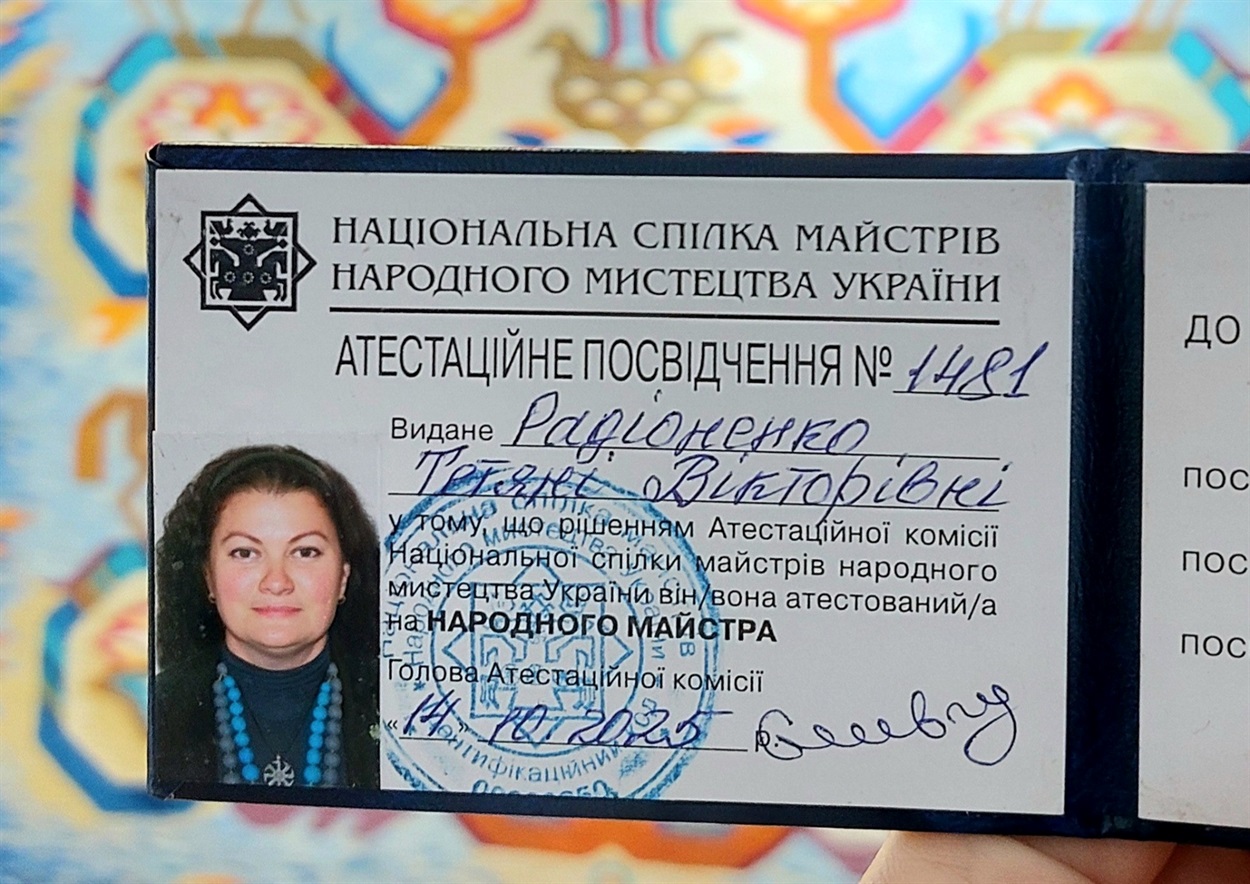 НАЦІОНАЛЬНА СПІЛКА МАЙСТРІВ
НАРОДНОГО МИСТЕЦТВА УКРАЇНИ
АТЕСТАЦІЙНЕ ПОСВІДЧЕННЯ № 1481
Видане Радіоненко
Тетяні Вікторівні
у тому, що рішенням Атестаційної комісії
Національної спілки майстрів народного
мистецтва України він/вона атестований/а
на НАРОДНОГО МАЙСТРА
Голова Атестаційної комісії
«14» 10. 2025 р.
ДО
ПОС
ПОС
ПОС